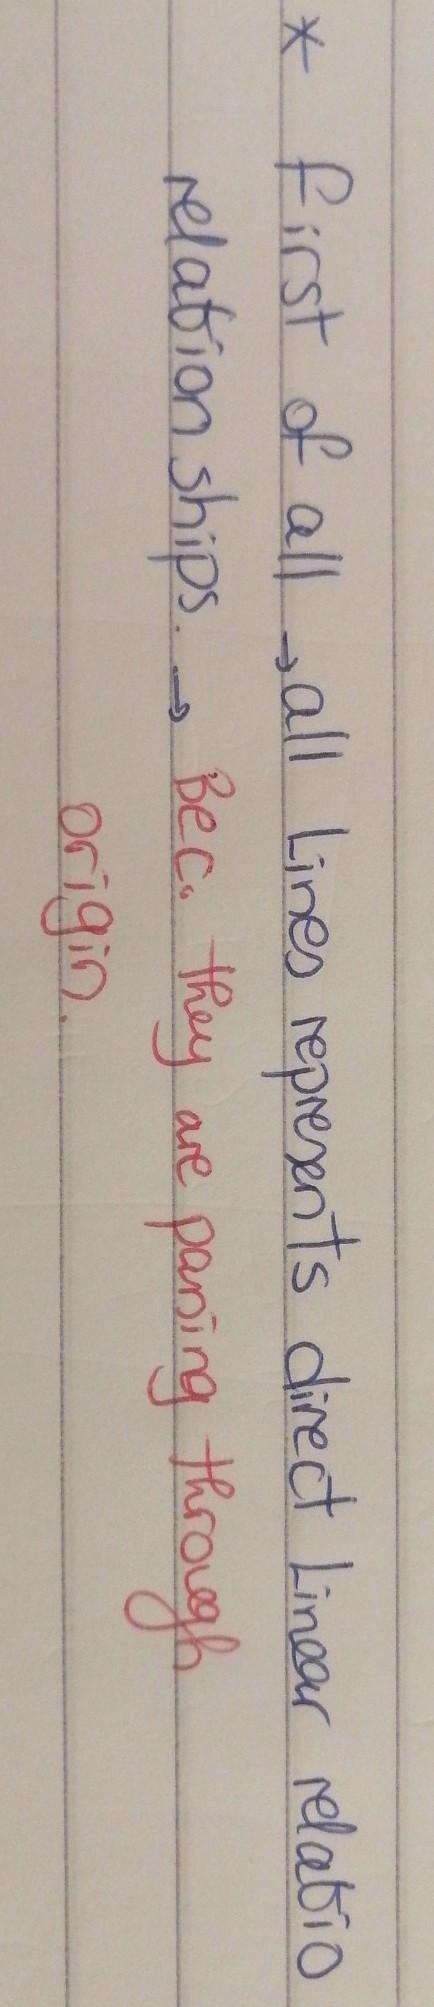 * First of all → all Lines represents direct Linear relatio
relation ships. → Bec. they are passing through
origin.